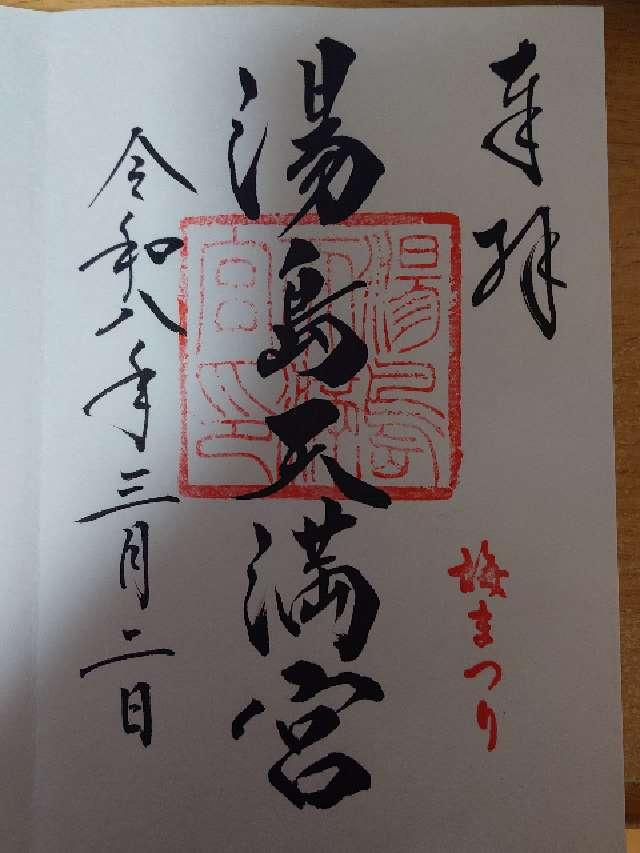 奉拝
梅まつり
湯島天満宮
湯島天満宮印
令和八年三月二日